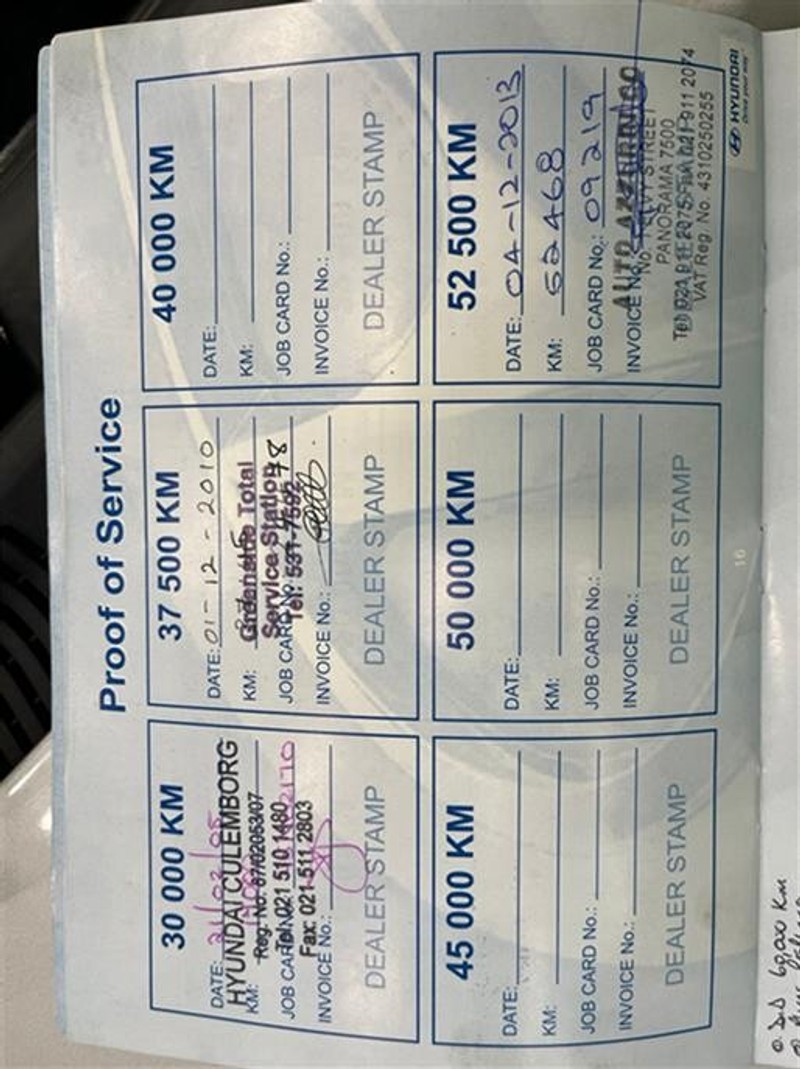 Proof of Service
30 000 KM
DATE:
HYUNDAI CULEMBORG
KM:
Reg. No. 67/02053/07
JOB CARD No.:
Tel: 021 510 1480
Fax: 021 511 2803
INVOICE No.:
DEALER STAMP
37 500 KM
DATE: 01-12-2010
KM:
Greenside Total
Service Station
JOB CARD No.:
Tel: 531-7592
INVOICE No.:
DEALER STAMP
40 000 KM
DATE:
KM:
JOB CARD No.:
INVOICE No.:
DEALER STAMP
45 000 KM
DATE:
KM:
JOB CARD No.:
INVOICE No.:
DEALER STAMP
50 000 KM
DATE:
KM:
JOB CARD No.:
INVOICE No.:
DEALER STAMP
52 500 KM
DATE: 04-12-2013
KM: 52468
JOB CARD No.: 09219
AUTO
INVOICE No.:
STREET
PANORAMA 7500
911 2074
VAT Reg. No. 4310250255
HYUNDAI
Drive your way
16
60,000 Km